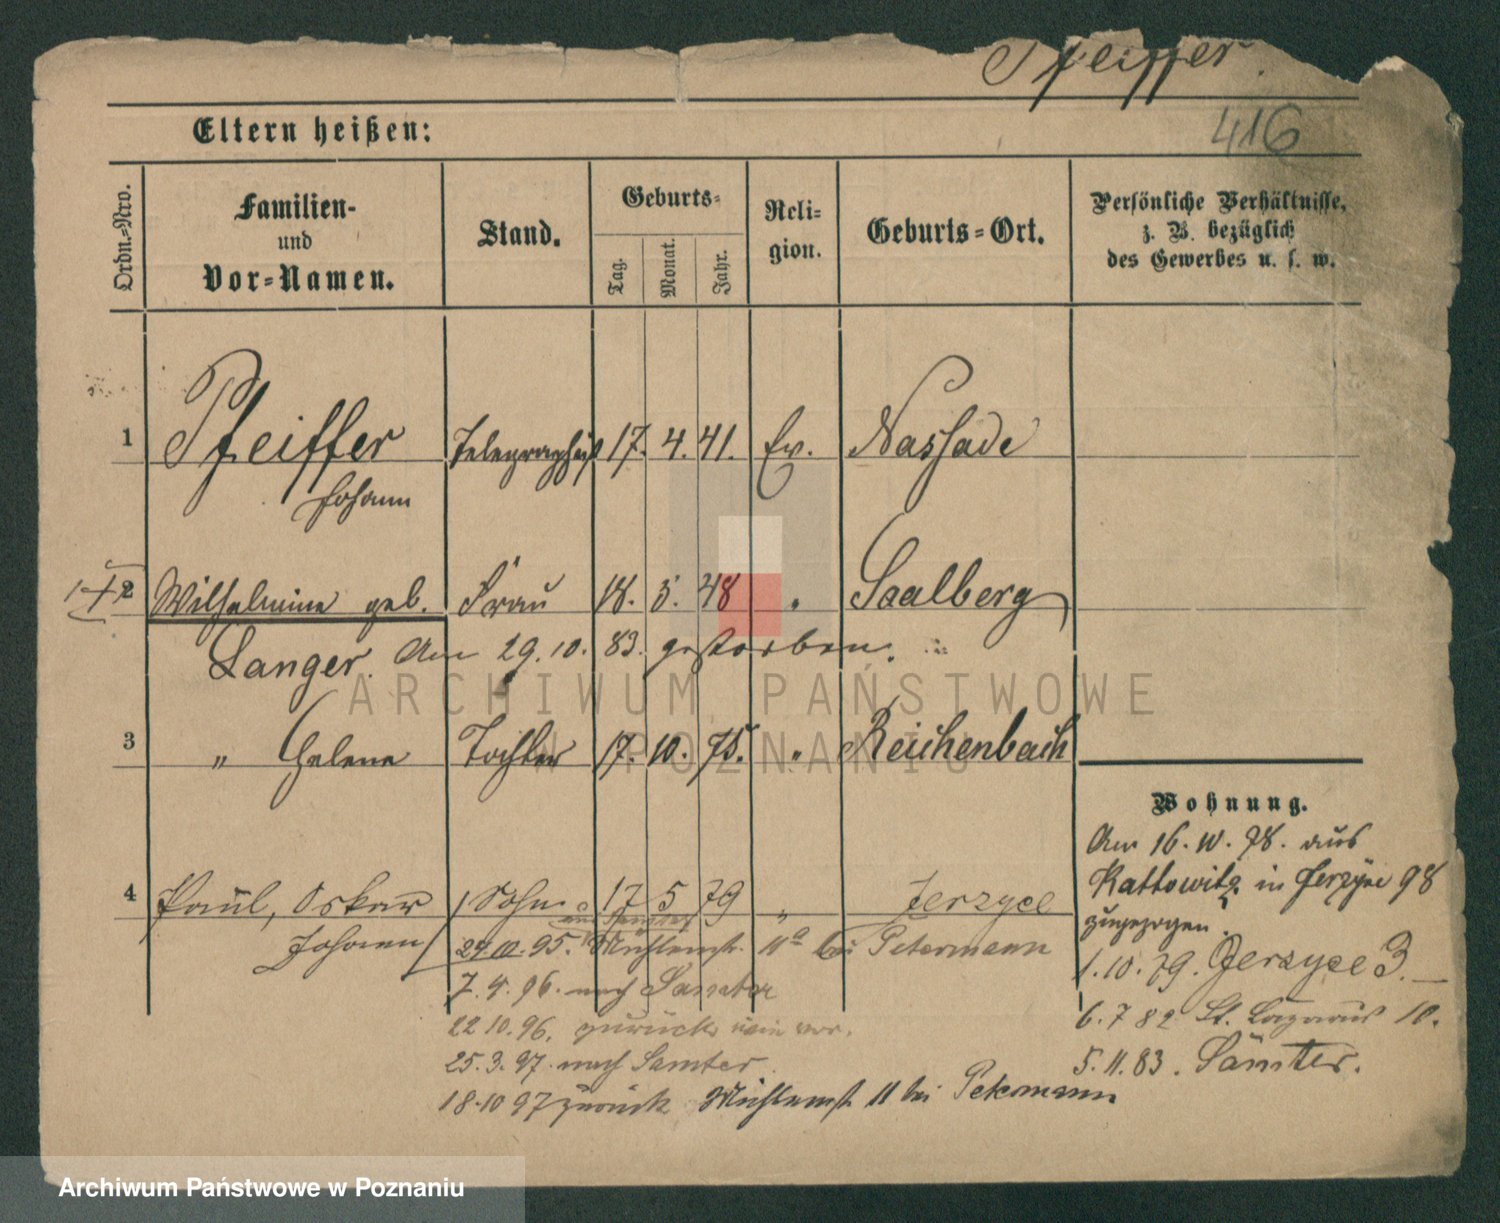 Pfeiffer.
416
Eltern heißen:
Ordn.-Nro.
Familien-
und
Vor-Namen.
Stand.
Geburts-
Tag.
Monat.
Jahr.
Reli-
gion.
Geburts-Ort.
Persönliche Verhältnisse,
z. B. bezüglich
des Gewerbes u. s. w.
1 Pfeiffer 17. 4. 41. Ev. Nassade
Johann
2 Wilhelmine geb. Frau 18. 5. 48 " Saalberg
Langer. Am 29.10.83. gestorben.
3 " Helene Tochter 17. 10. 75. " Reichenbach
Wohnung.
Am 16. 78. aus
Kattowitz in Jerzyce 98
zugezogen.
1.10.79. Jerzyce 3.
6.7 82 St. Lazarus 10.
5.11.83. Samter.
4 Paul, Oskar Sohn 17 5 79 " Jerzyce
Johann aus Samter
95. Mühlenstr. 11a bei Petermann
7.4.96. nach Samter
22.10.96. zurück
25.3.97. nach Samter
18.10 97 zurück Mühlenstr. 11 bei Petermann
ARCHIWUM PAŃSTWOWE
W POZNANIU
Archiwum Państwowe w Poznaniu